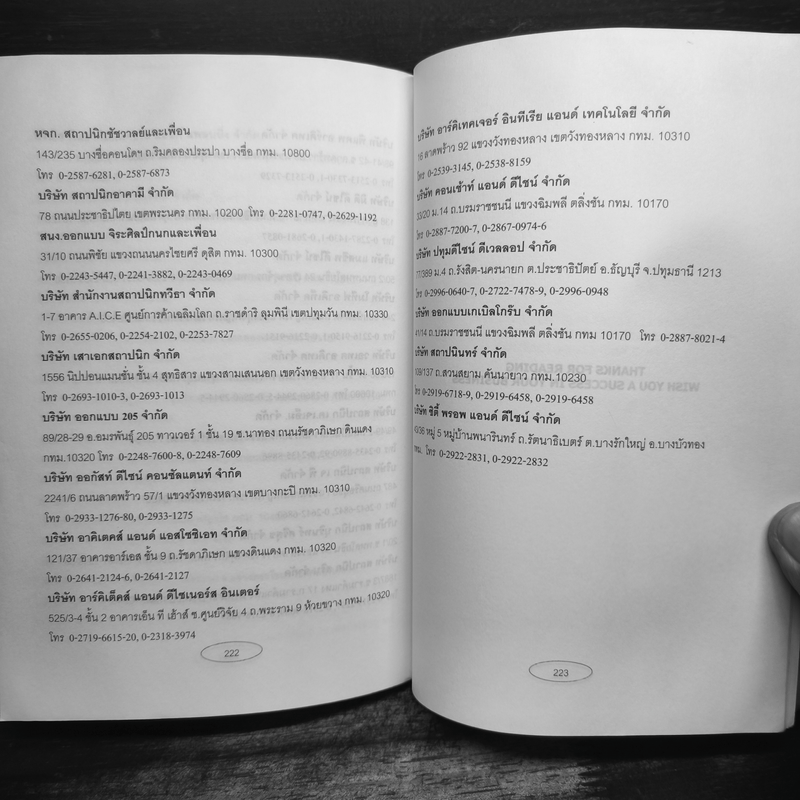 หจก. สถาปนิกชัชวาลย์และเพื่อน
143/235 บางซื่อคอนโดฯ ถ.ริมคลองประปา บางซื่อ กทม. 10800
โทร 0-2587-6281, 0-2587-6873
บริษัท สถาปนิกอาคามี จำกัด
78 ถนนประชาธิปไตย เขตพระนคร กทม. 10200 โทร 0-2281-0747, 0-2629-1192
สนง.ออกแบบ จิระศิลป์กนกและเพื่อน
31/10 ถนนพิชัย แขวงถนนนครไชยศรี ดุสิต กทม. 10300
โทร 0-2243-5447, 0-2241-3882, 0-2243-0469
บริษัท สำนักงานสถาปนิกทวีธา จำกัด
1-7 อาคาร A.I.C.E ศูนย์การค้าเฉลิมโลก ถ.ราชดำริ ลุมพินี เขตปทุมวัน กทม. 10330
โทร 0-2655-0206, 0-2254-2102, 0-2253-7827
บริษัท เสาเอกสถาปนิก จำกัด
1556 นิปปอนแมนชั่น ชั้น 4 สุทธิสาร แขวงสามเสนนอก เขตวังทองหลาง กทม. 10310
โทร 0-2693-1010-3, 0-2693-1013
บริษัท ออกแบบ 205 จำกัด
89/28-29 อ.อมรพันธุ์ 205 ทาวเวอร์ 1 ชั้น 19 ซ.นาทอง ถนนรัชดาภิเษก ดินแดง
กทม.10320 โทร 0-2248-7600-8, 0-2248-7609
บริษัท ออกัสท์ ดีไซน์ คอนซัลแตนท์ จำกัด
2241/6 ถนนลาดพร้าว 57/1 แขวงวังทองหลาง เขตบางกะปิ กทม. 10310
โทร 0-2933-1276-80, 0-2933-1275
บริษัท อาคิเตคส์ แอนด์ แอสโซซิเอท จำกัด
121/37 อาคารอาร์เอส ชั้น 9 ถ.รัชดาภิเษก แขวงดินแดง กทม. 10320
โทร 0-2641-2124-6, 0-2641-2127
บริษัท อาร์คิเต็คส์ แอนด์ ดีไซเนอร์ส อินเตอร์
525/3-4 ชั้น 2 อาคารเอ็น ที เฮ้าส์ ซ.ศูนย์วิจัย 4 ถ.พระราม 9 ห้วยขวาง กทม. 10320
โทร 0-2719-6615-20, 0-2318-3974
222
บริษัท อาร์คิเทคเจอร์ อินทีเรีย แอนด์ เทคโนโลยี จำกัด
16 ลาดพร้าว 92 แขวงวังทองหลาง เขตวังทองหลาง กทม. 10310
โทร 0-2539-3145, 0-2538-8159
บริษัท คอนเซ้าท์ แอนด์ ดีไซน์ จำกัด
33/20 ม.14 ถ.บรมราชชนนี แขวงฉิมพลี ตลิ่งชัน กทม. 10170
โทร 0-2887-7200-7, 0-2867-0974-6
บริษัท ปทุมดีไซน์ ดีเวลลอป จำกัด
ม.4 ถ.รังสิต-นครนายก ต.ประชาธิปัตย์ อ.ธัญบุรี จ.ปทุมธานี 1213
โทร 0-2996-0640-7, 0-2722-7478-9, 0-2996-0948
บริษัท ออกแบบเกเบิลโกร๊บ จำกัด
ถ.บรมราชชนนี แขวงฉิมพลี ตลิ่งชัน กทม 10170 โทร 0-2887-8021-4
บริษัท สถาปนินทร์ จำกัด
ถ.สวนสยาม คันนายาว กทม.10230
โทร 0-2919-6718-9, 0-2919-6458, 0-2919-6458
บริษัท ซิตี้ พรอพ แอนด์ ดีไซน์ จำกัด
หมู่ 5 หมู่บ้านพนารินทร์ ถ.รัตนาธิเบตร์ ต.บางรักใหญ่ อ.บางบัวทอง
โทร 0-2922-2831, 0-2922-2832
223